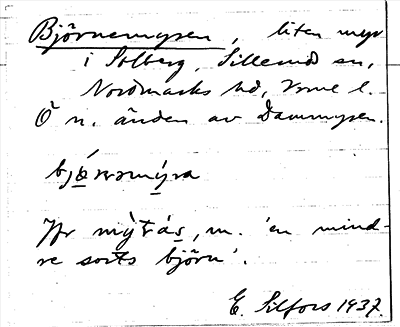 Björnemyren, liten myr
i Solberg, Sillerud sn,
Nordmarks hd, Vrml l.
Ö n. änden av Dammyren.
bjǿrnəmýra
Jfr mỳrás, m. 'en mind-
re sorts björn'.
E. Silfors 1937.